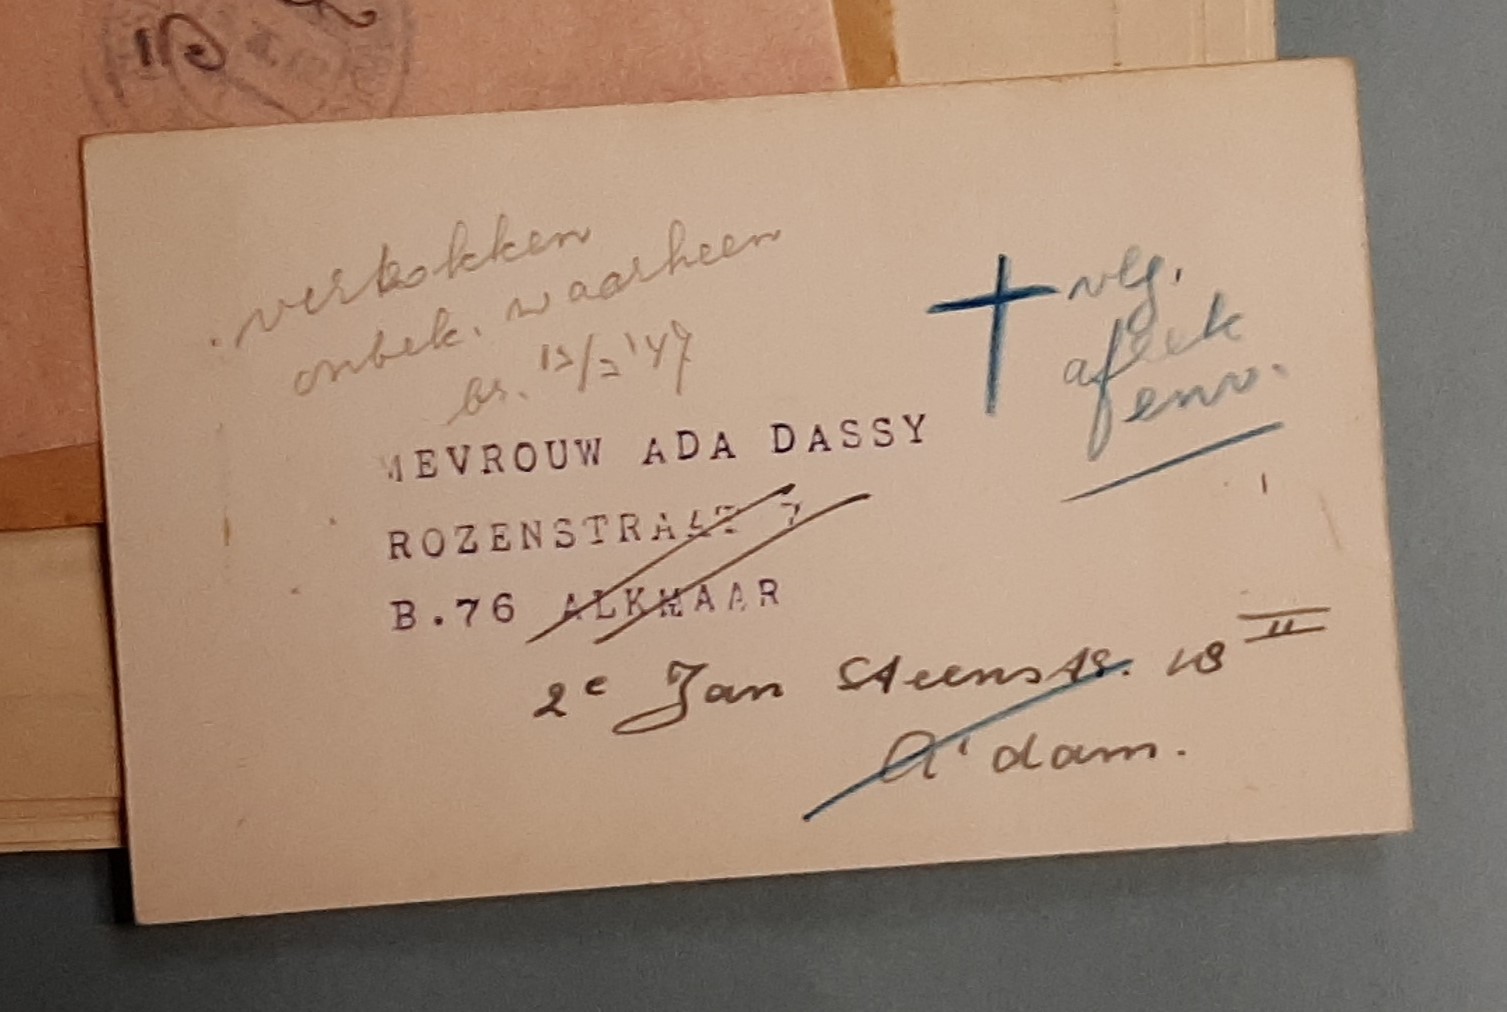 vertrokken
onbek. waarheen
br. 12/2 '47
MEVROUW ADA DASSY
ROZENSTRAAT 7
B.76 ALKMAAR
2e Jan Steenstr. 48 II
A'dam.
vlg.
env.